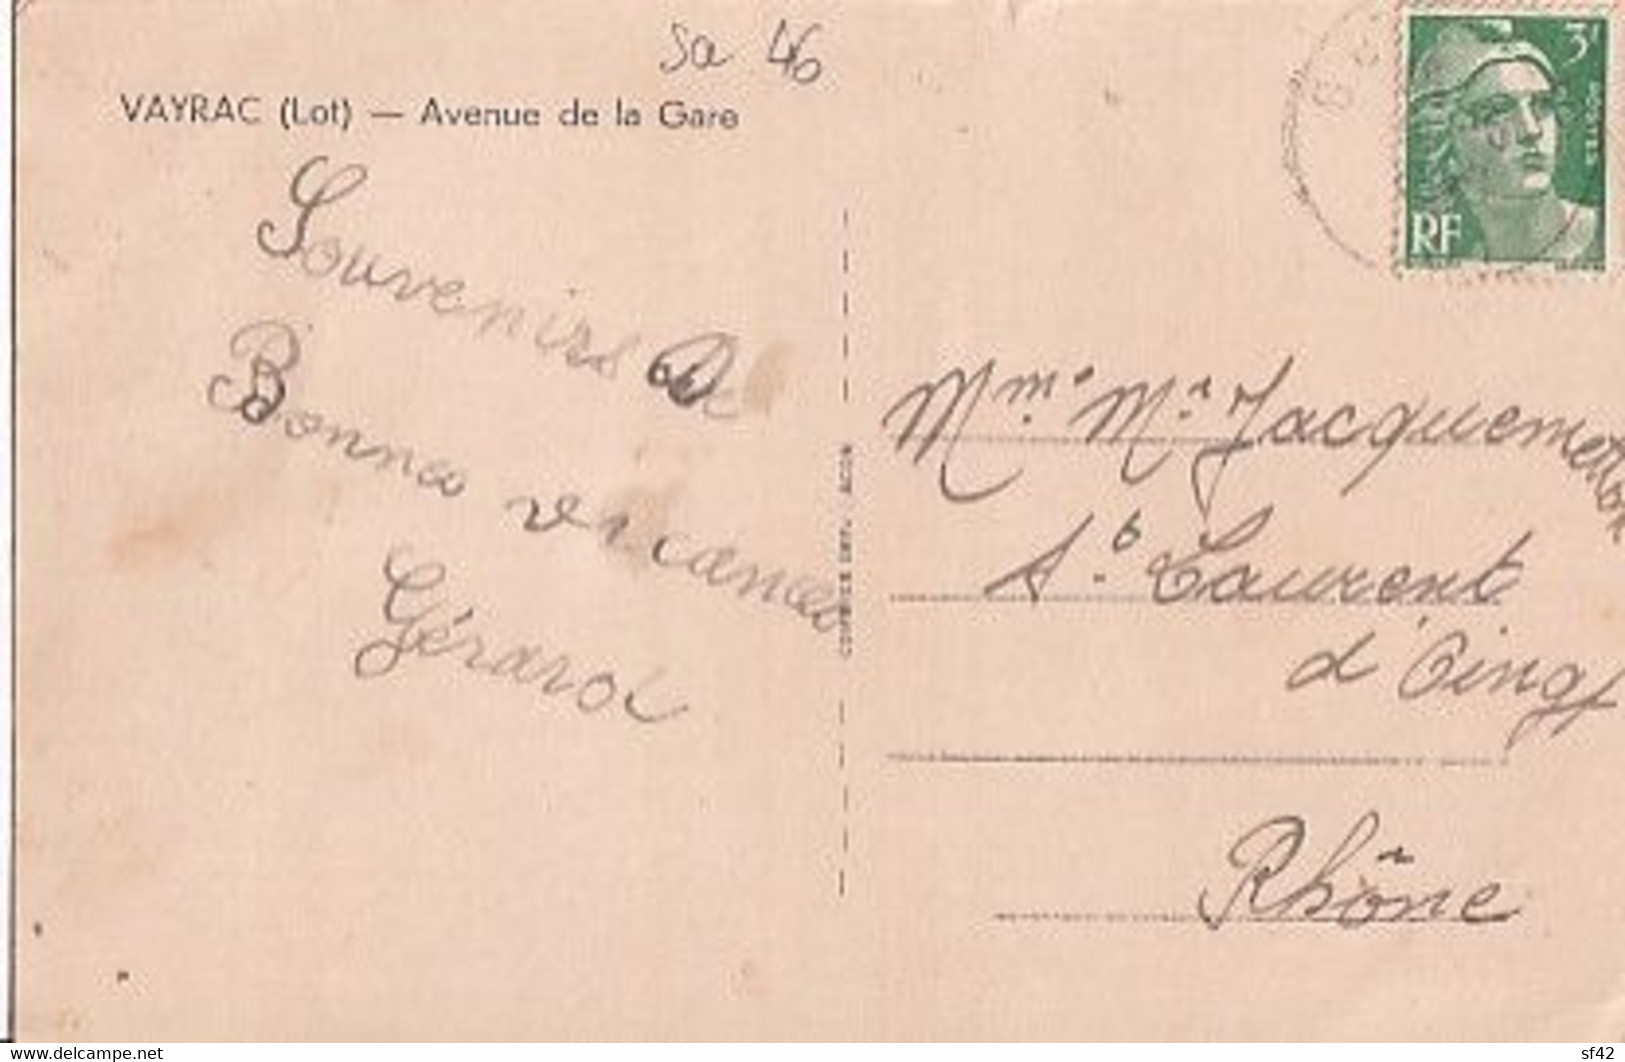 sa 46
VAYRAC (Lot) — Avenue de la Gare
Souvenirs De
Bonnes vacances
Gérard
3F
POSTES
RF
Mme Mr Jacquemetton
St. Laurent
d'Oingt
Rhône
www.delcampe.net
sf42